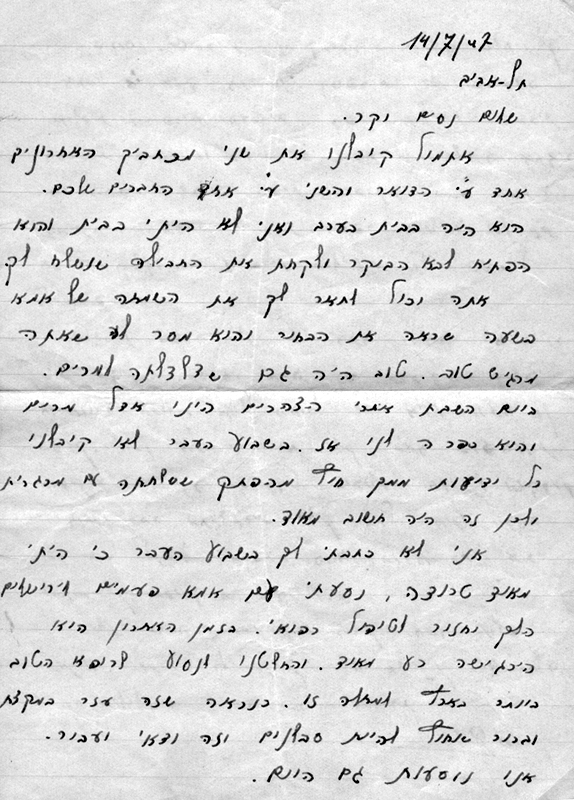 14/7/47
תל-אביב
שלום נסים יקר.
אתמול קיבלנו את שני מכתביך האחרונים
אחד ע"י הדואר והשני ע"י אחד החברים שלכם.
הוא היה בבית בערב ואני לא הייתי בבית והוא
הבטיח לבא הביקר ולקחת את החבילה שנשלח לך
אתה יכול לתאר לך את השמחה של אמא
בשעה שראה את הבחור והוא מסר לה שאתה
מרגיש טוב. טוב היה גם שצלצלתה למרים.
ביום השבת אחרי הצהרים היינו אצל מרים
והיא ספרה לנו את. בשבוע העבר לא קיבלנו
כל ידיעות ממך חוץ מהפתק ששלחתה עם מרגרית
ולכן זה היה חשוב מאוד.
אני לא כתבתי לך בשבוע העבר כי הייתי
מאוד טרודה, נסעתי עם אמא פעמים לירושלים
הלך וחזור לטיפול רפואי. בזמן האחרון היא
הרגישה רע מאוד. והחלטנו לנסוע לרופא הטוב
ביותר בארץ למחלה זו. כנראה שזה עזר במקצת
וברור שצריך להיות סבלנים וזה ודאי יעבור.
אנו נוסעות גם היום.